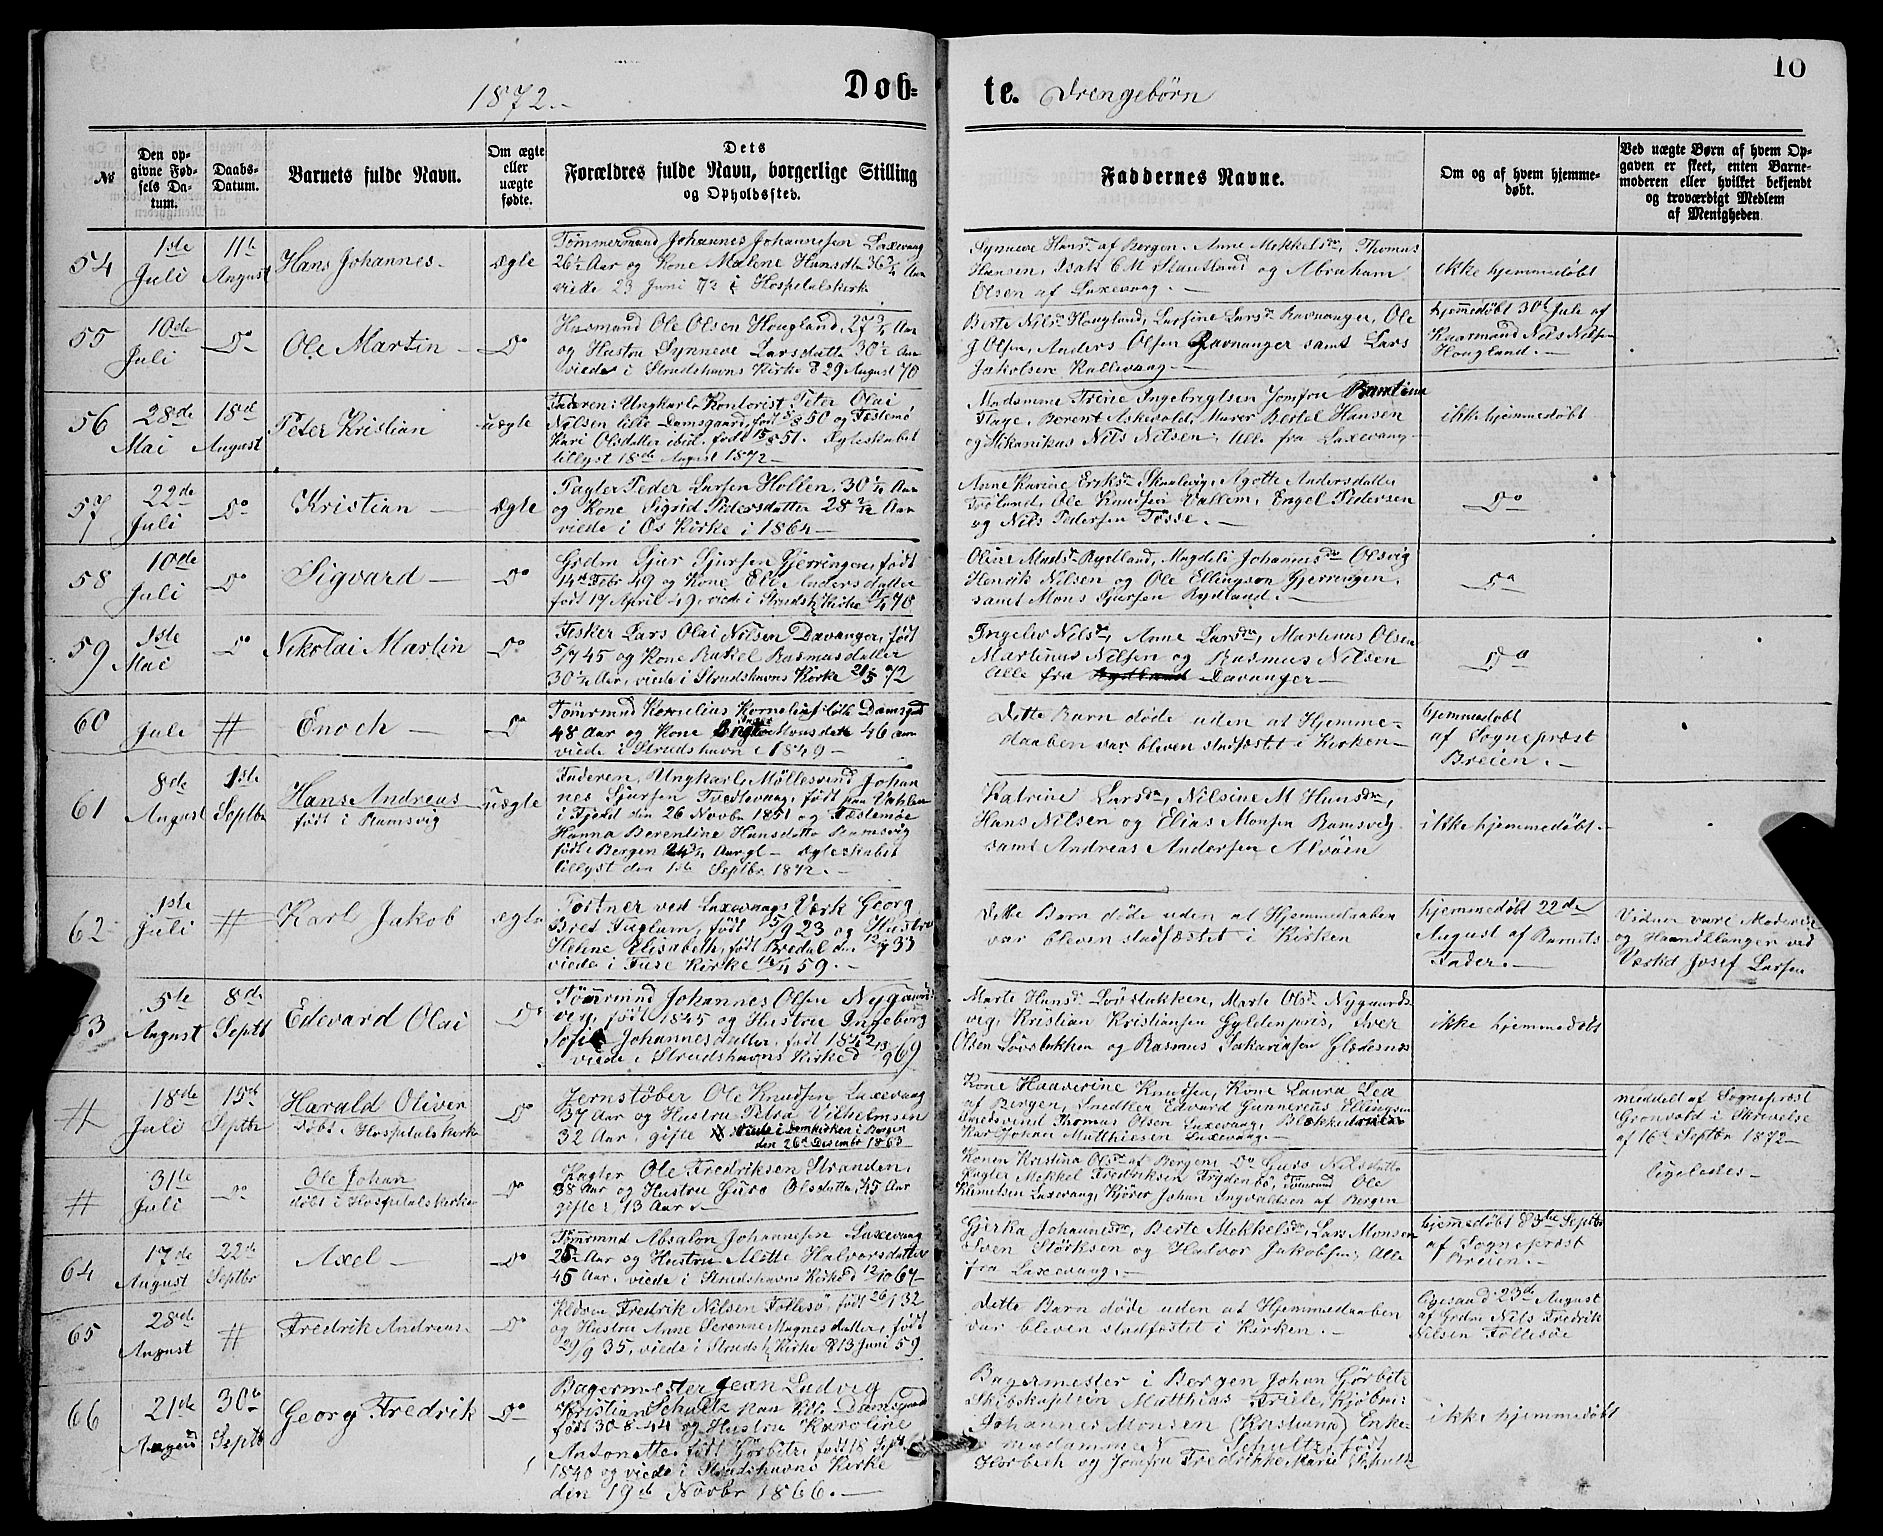 10
1872.
Døb=
te. Drengebørn
№
Den op-
givne Fød-
sels Da-
tum.
Daabs-
Datum.
Barnets fulde Navn.
Om ægte
eller
uægte
fødte.
Dets
Forældres fulde Navn, borgerlige Stilling
og Opholdssted.
Faddernes Navne.
Om og af hvem hjemme-
døbt.
Ved uægte Børn af hvem Op-
gaven er skeet, enten Barne-
moderen eller hvilket bekjendt
og troværdigt Medlem
af Menigheden.
54
1ste
Juli
11te
August
Hans Johannes
Ægte
Tømmermand Johannes Johannesen Laxevaag
26½ Aar og Kone Malene Hansdtr 36¾ Aar
viede 23 Juni 72 i Hospitalskirk
Synneve Hansdr af Bergen. Anne Mikkelsdr, Thomas
Hansen, Isak C M Stautland og Abraham
Olsen af Laxevaag.
ikke hjemmedøbt
55
10de
Juli
Do
Ole Martin
Do
Husmand Ole Olsen Hougland, 27¾ Aar
og Hustru Synneve Larsdatter 30½ Aar
viede i Strudshavns Kirke d 29 August 70
Berte Nilsdr Hougland, Larsine Larsdr Ravnanger, Ole
J Olsen, Anders Olsen Ravnanger samt Lars
Jakobsen Kallevaag
hjemmedøbt 30te Juli af
Kaarmand Nils Nilsen
Hougland.
56
28de
Mai
18de
August
Peter Kristian
uægte
Faderen: Ungkarl Kontorist Peter Olai
Nilsen lille Damsgaard, født 8/8 50 og Fæstemø
Kari Olsdatter ibid. født 15/8 51. Ægteskabet
tillyst 18de August 1872
Madamme Trine Ingebrigtsen Jomfru Bantina
Flage, Berent Askevold, Murer Bertel Hansen
og Mekanikus Nils Nilsen, Alle fra Laxevaag
ikke hjemmedøbt
57
22de
Juli
Do
Kristian
Ægte
Fagter Peder Larsen Hollen, 30¼ Aar
og Kone Sigrid Pedersdatter 28½ Aar
viede i Os Kirke i 1864
Anne Karine Eriksdr Skaalevig, Agotte Andersdatter
Frøland, Ole Knudsen Vallem, Engel Pedersen
og Nils Pedersen Tøsse.
Do
58
10de
Juli
Do
Sigvard
Do
Grdm Sjur Sjursen Gjerringen, født
14de Febr 49 og Kone Eli Andersdatter
født 17 April 49, viede i Strudsh Kirke
Oline Madsdr Rydland, Magdeli Johannesdr Olsvig
Henrik Nilsen og Ole Ellingsen Gjerringen,
samt Mons Sjursen Rydland.
Do
59
1ste
Mai
Do
Nikolai Martin
Do
Fisker Lars Olai Nilsen Davanger, født
5/7 45 og Kone Rakel Rasmusdatter
30¼ Aar, viede i Strudshavns Kirke 21/5 72
Ingelev Nilsdr, Anne Larsdr, Martinus Olsen
Martinus Nilsen og Rasmus Nilsen
Alle fra Rydland Davanger
Do
60
Juli
#
Enoch
Do
Tømrmnd Kornelius Korneliusen lille Damsgrd
48 Aar og Kone Monsdatr 46 Aar
viede i Strudshavn i 1849
Dette Barn døde uden at Hjemme-
daaben var bleven stadfæstet i Kirken
hjemmedøbt
af Sognepræst
Breien.
61
8de
August
1ste
Septbr
Hans Andreas
født i Ramsvig
uægte
Faderen, Ungkarl Møllesvend Johan
nes Sjursen Tvedtevaag, født paa Vahlen
i Fjeld den 26 Novbr 1851 og Fæstemøe
Hanna Berentine Hansdatter Ramsvig
født i Bergen 24¾ Aar gl Ægteskabet
tillyst den 1ste Septbr 1872.
Katrine Larsdr, Nilsine M Hansdr,
Hans Nilsen og Elias Monsen Ramsvig
samt Andreas Andersen Alvøen
ikke hjemmedøbt.
62
1ste
Juli
#
Karl Jakob
Ægte
Portner ved Laxevaags Værk Georg
Bred Fuglum, født 15/9 23 og Hustru
Helene Elisabeth, født Bredal den 12/9 33
viede i Fuse Kirke 14/4 59.
Dette Barn døde uden at Hjemmedaaben
var bleven stadfæstet i Kirken
hjemmedøbt 22de
August af Barnets
Fader.
Vidner vare Moderen
og Haandlanger ved
Værket Josef Larsen
63
5te
August
8de
Septb
Edevard Olai
Do
Tømrmnd Johannes Olsen Nygaards
vig, født 1845 og Hustru Ingeborg
Sofie Johannesdatter, født 1842
viede i Strudshavns Kirke d 13/9 69
Marte Hansdr Løvstakken, Marte Olsdr Nygaards
vig, Kristian Kristiansen Gyldenpris, Iver
Olsen Løvstakken og Rasmus Sakariasen Gladesnæs
ikke hjemmedøbt
#
18de
Juli
15de
Septbr
Harald Oliver
døbt i Hospitalskirke
Do
Jernstøber Ole Knudsen Laxevaag
37 Aar og Hustru Petra Vilhelmsen
32 Aar, gifte viede i Domkirken i Bergen
den 26de Desember 1863
Kone Haaverine Knudsen, Kone Laura Lea
af Bergen, Snedker Edvard Gunnerius Ellingsen
Thomas Olsen Laxevaag,
Karl Johan Matthiesen Laxevaag.
meddelt af Sognepræst
Grønvold i Skrivelse
af 16de Septbr 1872
#
31te
Juli
Do
Ole Johan
døbt i Hospitalskirke
Do
Fagter Ole Fredriksen Stranden,
38 Aar og Hustru Guro Olsdatter, 45 Aar
gifte: 13 Aar
Konen Kristina Olsdr af Bergen, Do Guro Nilsdatter
Fagter Mikkel Fredriksen Frydenbø, Tømrmand Ole
Knudsen Laxevaag, Kjører Johan Ingvaldsen af Bergen
ligeledes
64
17de
August
22de
Septbr
Axel
Do
Tømrmnd Absalon Johannesen Laxevaag
25 Aar og Hustru Mette Halvorsdatter
45 Aar, viede i Strudshavns Kirke d 12/10 67
Gjerka Johannesdr, Berte Mikkelsdr, Lars Monsen
Sven Størksen og Halvor Jakobsen, Alle
fra Laxevaag.
hjemmedøbt d 3die Septbr
af Sognepræst
Breien.
65
28de
August
#
Fredrik Andreas
Do
Fredrik Nilsen Follesø, født 26/1 32
og Hustru Anne Serenne Magnesdatter, født
29/9 35, viede i Strudsh Kirke d 13 Juni 59
Dette Barn døde uden at Hjemmedaaben
var bleven stadfæstet i Kirken.
23de August
af Grdm Nils Fredrik
Nilsen Follesøe
66
21de
August
30te
Septb
Georg Fredrik
Do
Bagermester Jean Ludvig
Kristian Schultz paa Damsgaard
født 30-6-44 og Hustru Karoline
Antonette, født Görbitz, født 18 Septb
1840 og viede i Strudshavns Kirke
den 19de Novbr 1866.
Bagermester i Bergen Johan Görbitz
Skibskaptein Matthias Friele, Kjøbm:
Johannes Monsen (Kristiania) Enke-
madamme N Schultz, født
Herbich og Jomfru Fredrikke Marie Schultz
ikke hjemmedøbt